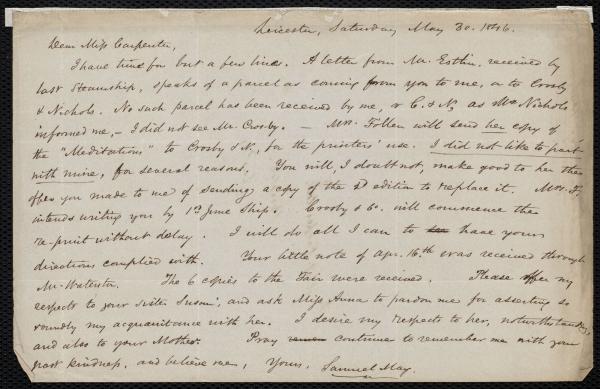 Leicester, Saturday May 30. 1846.
Dear Miss Carpenter,
I have time for but a few lines. A letter from Mr. Estlin, received by
last Steamship, speaks of a parcel as coming from you to me, or to Crosby
& Nichols. No such parcel has been received by me, or C. & N, as Mr. Nichols
informed me, – I did not see Mr. Crosby. – Mrs. Follen will send her copy of
the "Meditations" to Crosby & N., for the printers' use. I did not like to part
with mine, for several reasons. You will, I doubt not, make good to her the
offer you made to me of sending a copy of the edition to replace it. Mrs. F.
intends writing you by 1st June Ship. Crosby & Co. will commence the
re-print without delay. I will do all I can to have your
directions complied with. Your little note of Apr. 16th was received through
Mr. Waterston. The 6 copies to the Fair were received. Please offer my
respects to your sister Susan, and ask Miss Anna to pardon me for asserting so
roundly my acquaintance with her. I desire my respects to her, notwithstanding,
and also to your Mother. Pray continue to remember me with your
past kindness, and believe me, Yours, Samuel May.